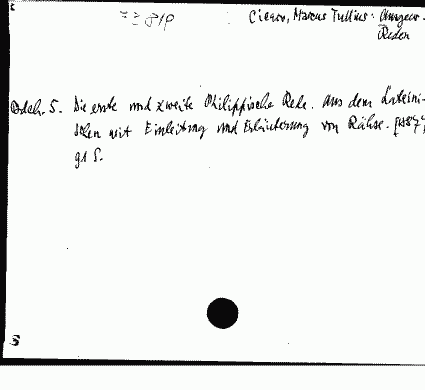 Cicero, Marcus Tullius: Ausgew.
Reden
Bdch. 5. Die erste und zweite Philippische Rede. Aus dem Lateini-
schen mit Einleitung und Erläuterung von Rähse. [1874]
91 S.
S